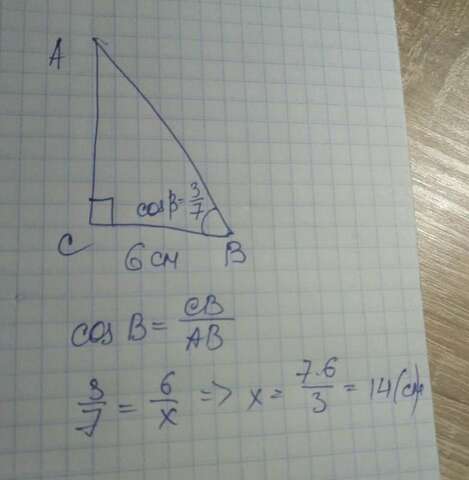 A
cos β = 3/7
C
6 см
B
cos B = CB/AB
3/7 = 6/x => x = 7·6/3 = 14 (см